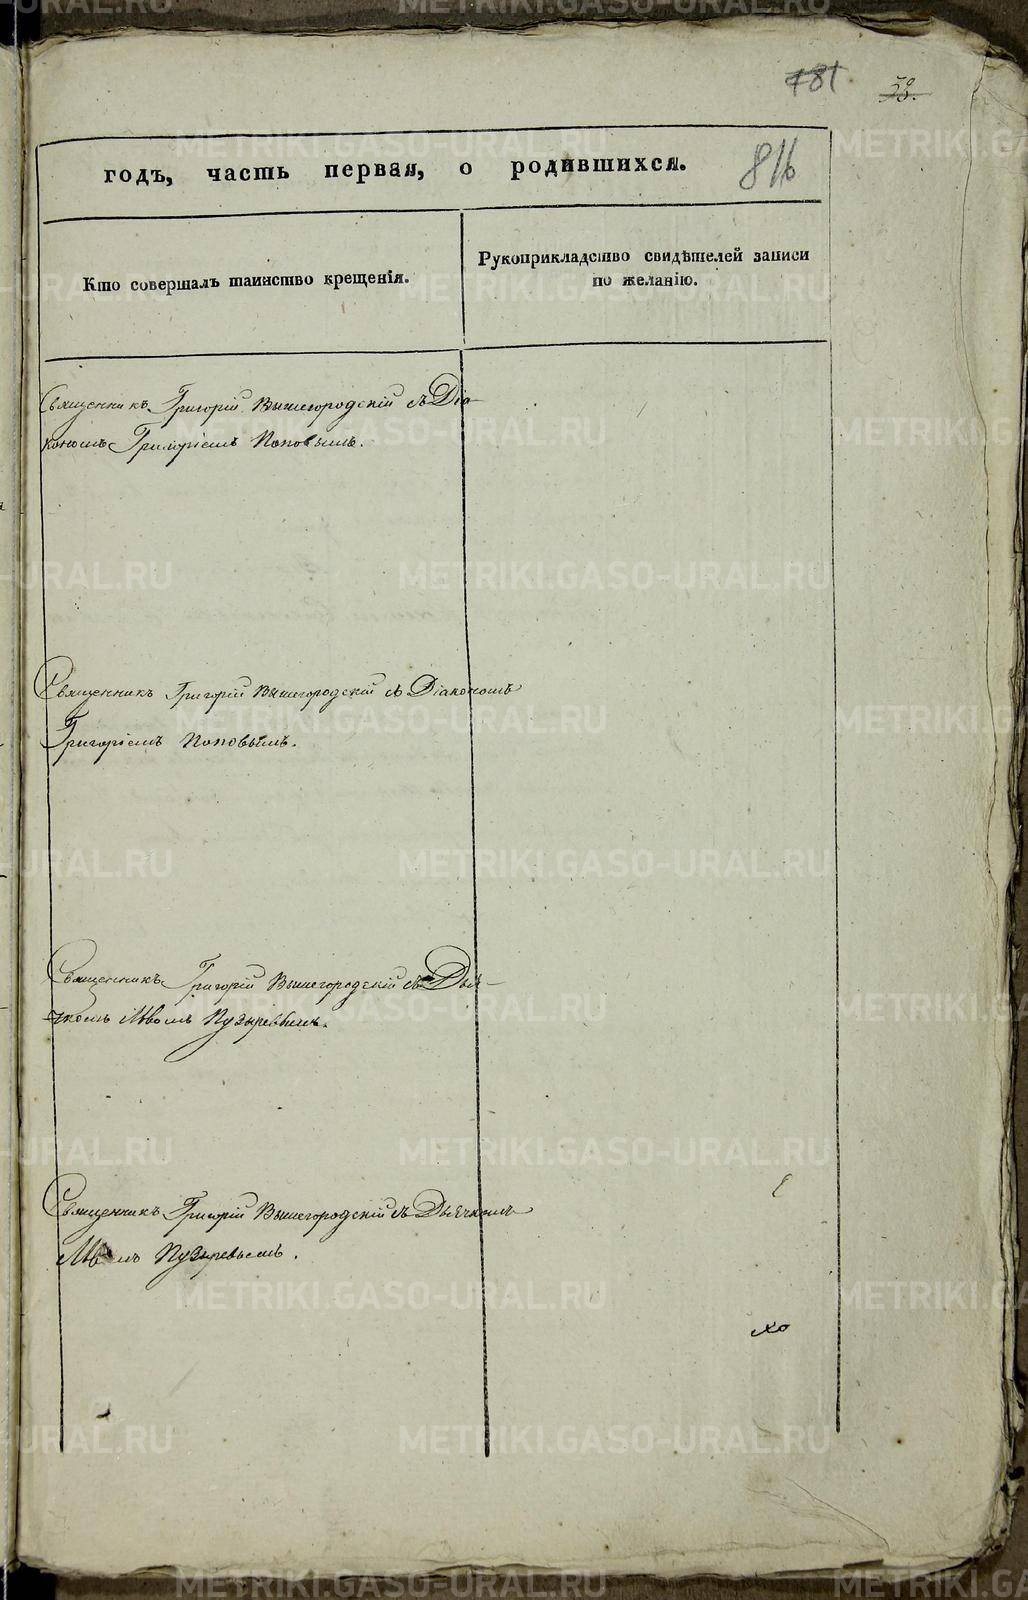 781
816
годъ, часть первая, о родившихся.
Кто совершалъ таинство крещенія.
Рукоприкладство свидѣтелей записи
по желанію.
Священникъ Григорій Вышегородскій съ Діа-
кономъ Григоріемъ Поповымъ.
Священникъ Григорій Вышегородскій съ Діакономъ
Григоріемъ Поповымъ.
Священникъ Григорій Вышегородскій съ Дья-
чкомъ Львомъ Пузыревымъ.
Священникъ Григорій Вышегородскій съ Дьячкомъ
Львомъ Пузыревымъ.
METRIKI.GASO-URAL.RU